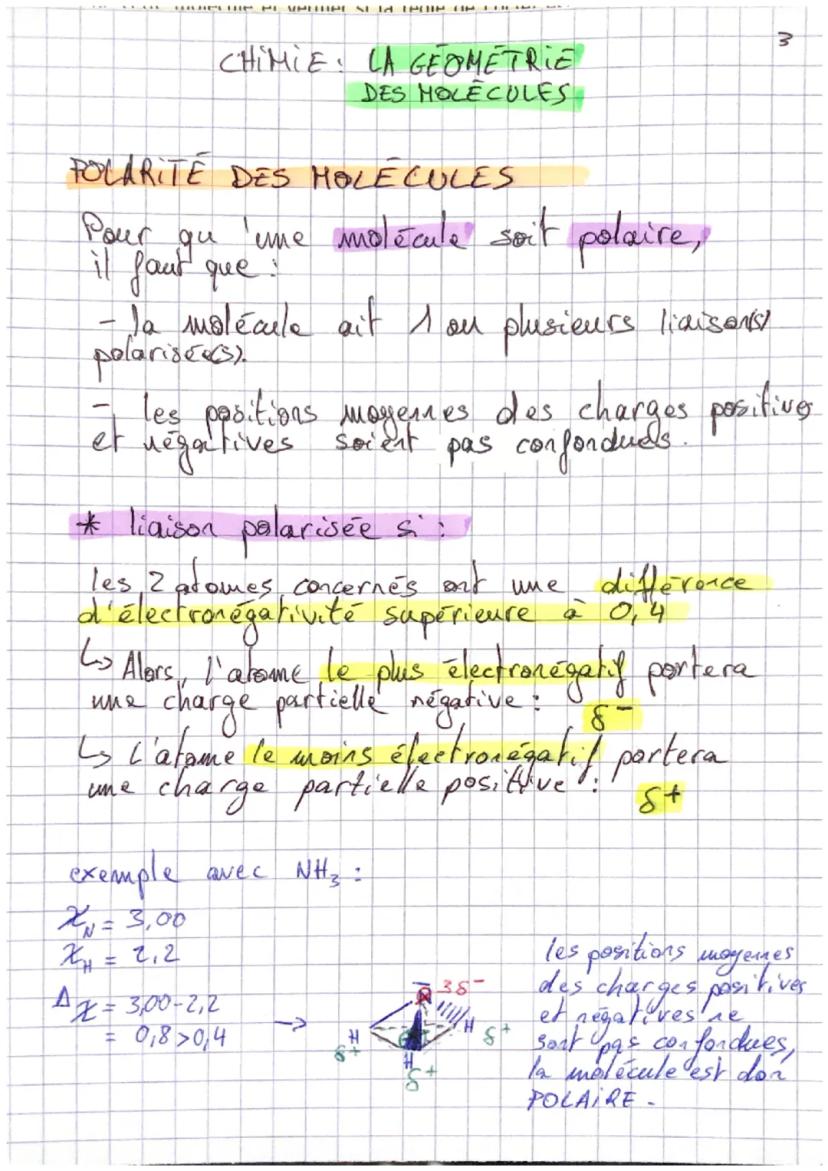 3
CHIMIE : LA GÉOMÉTRIE
DES MOLÉCULES
POLARITÉ DES MOLÉCULES
Pour qu'une molécule soit polaire,
il faut que :
- la molécule ait 1 ou plusieurs liaison(s)
polarisée(s).
- les positions moyennes des charges positives
et négatives soient pas confondues.
* liaison polarisée si :
les 2 atomes concernés ont une différence
d'électronégativité supérieure à 0,4
↳ Alors, l'atome le plus électronégatif portera
une charge partielle négative : δ-
↳ L'atome le moins électronégatif portera
une charge partielle positive : δ+
exemple avec NH₃ :
χN = 3,00
χH = 2,2
Δχ = 3,00-2,2
= 0,8 > 0,4
→
3δ-
H
δ+
H
δ+
H
δ+
les positions moyennes
des charges positives
et négatives ne
sont pas confondues,
la molécule est don
POLAIRE.